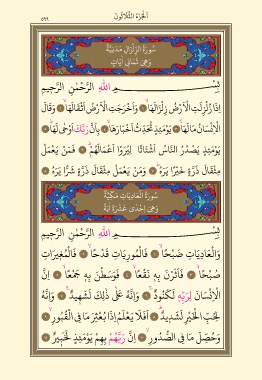 اَلْجُزْءُ الثَّلَاثُونَ
٥٩٩
سُورَةُ الزِّلْزَالِ مَدَنِيَّةٌ
وَهِيَ ثَمَانِي اٰيَاتٍ
بِسْمِ اللّٰهِ الرَّحْمٰنِ الرَّحِيمِ
اِذَا زُلْزِلَتِ الْاَرْضُ زِلْزَالَهَا ۞ وَاَخْرَجَتِ الْاَرْضُ اَثْقَالَهَا ۞ وَقَالَ
الْاِنْسَانُ مَالَهَا ۞ يَوْمَئِذٍ تُحَدِّثُ اَخْبَارَهَا ۞ بِاَنَّ رَبَّكَ اَوْحٰى لَهَا ۞
يَوْمَئِذٍ يَصْدُرُ النَّاسُ اَشْتَاتًا لِيُرَوْا اَعْمَالَهُمْ ۞ فَمَنْ يَعْمَلْ
مِثْقَالَ ذَرَّةٍ خَيْرًا يَرَهُ ۞ وَمَنْ يَعْمَلْ مِثْقَالَ ذَرَّةٍ شَرًّا يَرَهُ ۞
سُورَةُ الْعَادِيَاتِ مَكِّيَّةٌ
وَهِيَ اِحْدٰى عَشْرَةَ اٰيَةً
بِسْمِ اللّٰهِ الرَّحْمٰنِ الرَّحِيمِ
وَالْعَادِيَاتِ ضَبْحًا ۞ فَالْمُورِيَاتِ قَدْحًا ۞ فَالْمُغِيرَاتِ
صُبْحًا ۞ فَاَثَرْنَ بِهِ نَقْعًا ۞ فَوَسَطْنَ بِهِ جَمْعًا ۞ اِنَّ
الْاِنْسَانَ لِرَبِّهِ لَكَنُودٌ ۞ وَاِنَّهُ عَلٰى ذٰلِكَ لَشَهِيدٌ ۞ وَاِنَّهُ
لِحُبِّ الْخَيْرِ لَشَدِيدٌ ۞ اَفَلَا يَعْلَمُ اِذَا بُعْثِرَ مَا فِى الْقُبُورِ ۞
وَحُصِّلَ مَا فِى الصُّدُورِ ۞ اِنَّ رَبَّهُمْ بِهِمْ يَوْمَئِذٍ لَخَبِيرٌ ۞